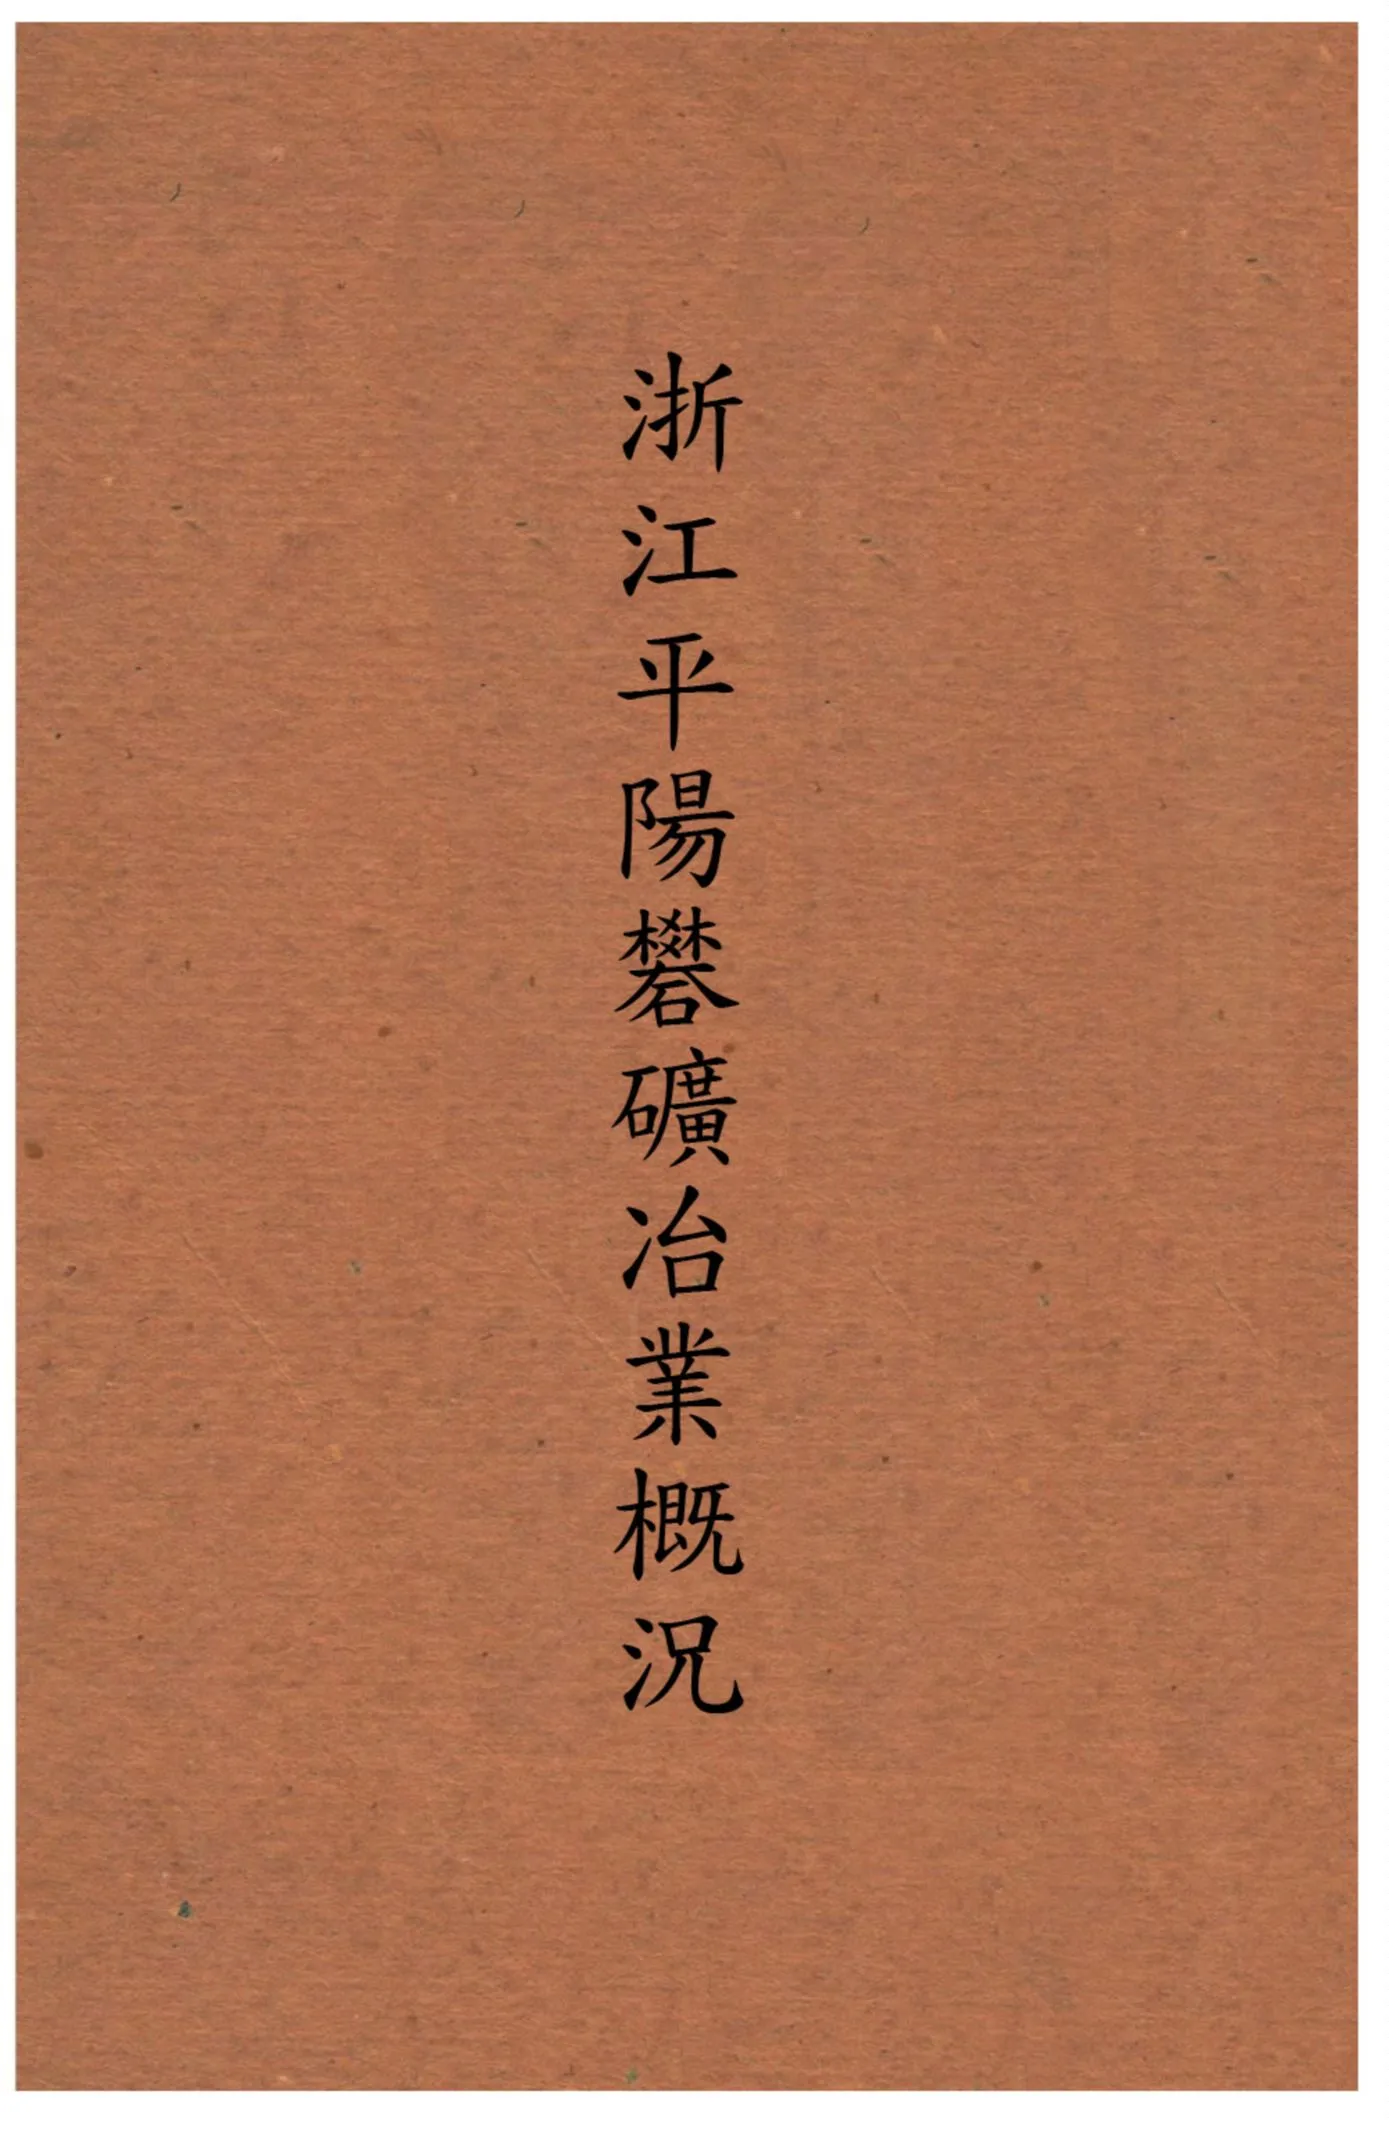 浙江平陽礬礦冶業概況